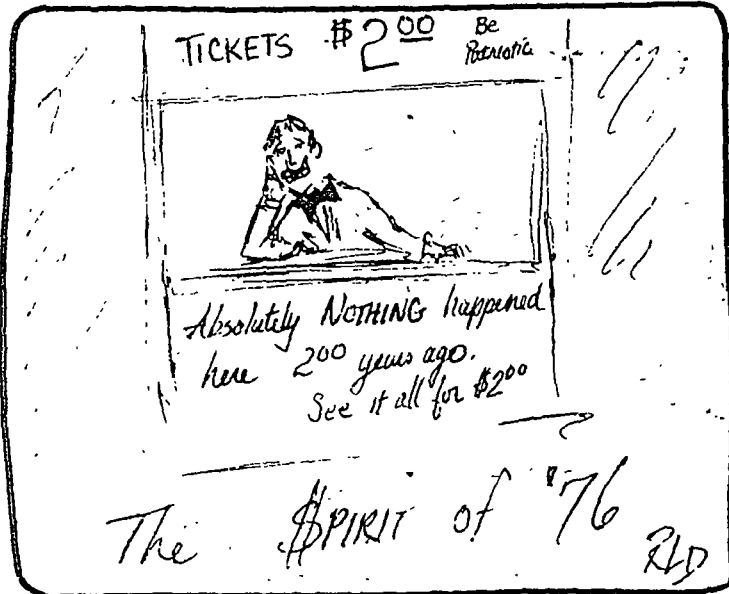 TICKETS $2.00 Be
Patriotic
Absolutely NOTHING happened
here 200 years ago.
See it all for $2.00
The $PIRIT of '76
RLD